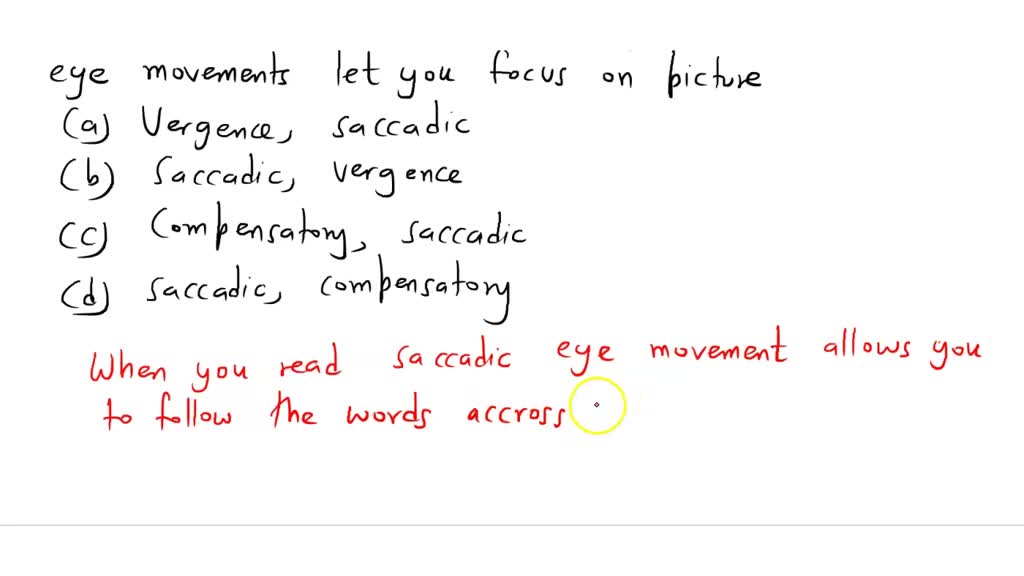 eye movements let you focus on picture
(a) Vergence, saccadic
(b) Saccadic, vergence
(c) Compensatory, saccadic
(d) saccadic, compensatory
When you read saccadic eye movement allows you
to follow the words accross